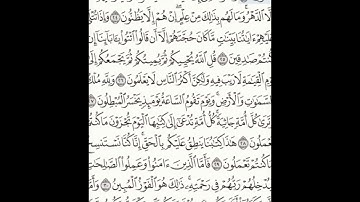 إِلَّا ٱلدَّهْرُ وَمَا لَهُم بِذَٰلِكَ مِنْ عِلْمٍ إِنْ هُمْ إِلَّا يَظُنُّونَ ٢٤ وَإِذَا تُتْلَىٰ
عَلَيْهِمْ ءَايَٰتُنَا بَيِّنَٰتٍ مَّا كَانَ حُجَّتَهُمْ إِلَّآ أَن قَالُوا۟ ٱئْتُوا۟ بِـَٔابَآئِنَآ إِن
كُنتُمْ صَٰدِقِينَ ٢٥ قُلِ ٱللَّهُ يُحْيِيكُمْ ثُمَّ يُمِيتُكُمْ ثُمَّ يَجْمَعُكُمْ إِلَىٰ
يَوْمِ ٱلْقِيَٰمَةِ لَا رَيْبَ فِيهِ وَلَٰكِنَّ أَكْثَرَ ٱلنَّاسِ لَا يَعْلَمُونَ ٢٦ وَلِلَّهِ مُلْكُ
ٱلسَّمَٰوَٰتِ وَٱلْأَرْضِ وَيَوْمَ تَقُومُ ٱلسَّاعَةُ يَوْمَئِذٍ يَخْسَرُ ٱلْمُبْطِلُونَ ٢٧
وَتَرَىٰ كُلَّ أُمَّةٍ جَاثِيَةً كُلُّ أُمَّةٍ تُدْعَىٰٓ إِلَىٰ كِتَٰبِهَا ٱلْيَوْمَ تُجْزَوْنَ مَا كُنتُمْ
تَعْمَلُونَ ٢٨ هَٰذَا كِتَٰبُنَا يَنطِقُ عَلَيْكُم بِٱلْحَقِّ إِنَّا كُنَّا نَسْتَنسِخُ
مَا كُنتُمْ تَعْمَلُونَ ٢٩ فَأَمَّا ٱلَّذِينَ ءَامَنُوا۟ وَعَمِلُوا۟ ٱلصَّٰلِحَٰتِ
فَيُدْخِلُهُمْ رَبُّهُمْ فِى رَحْمَتِهِۦ ذَٰلِكَ هُوَ ٱلْفَوْزُ ٱلْمُبِينُ ٣٠ وَأَمَّا